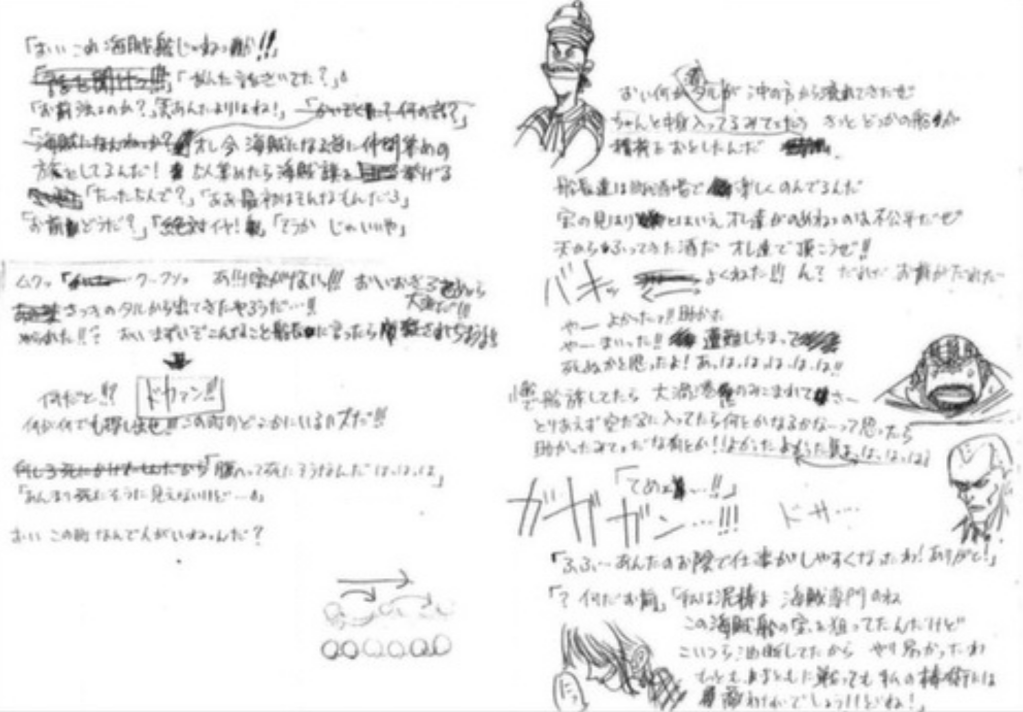 「おいこれ海賊船じゃねェか!!」
「話を聞けェ!!!」「あんた話きいてた？」
「お前強ェのか？」「まあんたよりはね！」「かいぞくって何の話？」
「海賊になんねェか？オレ今海賊になる為に仲間集めの
旅をしてるんだ！5人集めたら海賊旗を掲げる
「たった5人で？」「ああ最初はそんなもんだろ」
「お前どうだ？」「絶対イヤ！」「てうか じゃいいや」
ムクッ クークソッ あ!!!宝がない!!! おいおきろ
大変だ!!!
さっきのタルから出てきたやろうだ…!!
やられた!!? おいまずいぞこんなこと船長に言ったら殺されちまう
何だと!!? ドカァン!!
何が何でも探し出せ!! この町のどこかにいるハズだ!!!
何しろ死にかけてたんだから「腹へって死にそうなんだ はっはっは」
「あんまり死にそうに見えないけど…」
おい この町なんで人がいねェんだ？
おい何かタルが沖の方から流れてきたぜ
ちゃんと中身入ってるみてェだ きっとどっかの船が
積荷をおとしたんだ
船長達は町の酒場で楽しくのんでるんだ
宝の見はりとはいえオレ達がのめねェのは不公平だぜ
天からふってきた酒だ オレ達で頂こうぜ!!
バキッ よくねた!!! ん？だれだお前がだれだ
やー よかったァ!! 助かった
やー まいった!! 遭難しちまって
死ぬかと思ったよ！あっはっはっはっは!!
小船で船旅してたら 大渦巻にのみこまれてさー
とりあえず空だるに入ってたら何とかなるかなーって思ったら
助かったみてェだな何とか！よかったよかった はっはっはっ
「てめェ…!!」
ガガガン…!!! ドサ…
「ふふ…あんたのお陰で仕事がしやすくなったわ！ありがと！」
「？何だお前」「私は泥棒よ 海賊専門のね
この海賊船の宝を狙ってたんだけど
こいつら油断してたから やり易かったわ
もっとも まともに戦っても 私の棒術には
敵わないでしょうけどね！」
ニッ